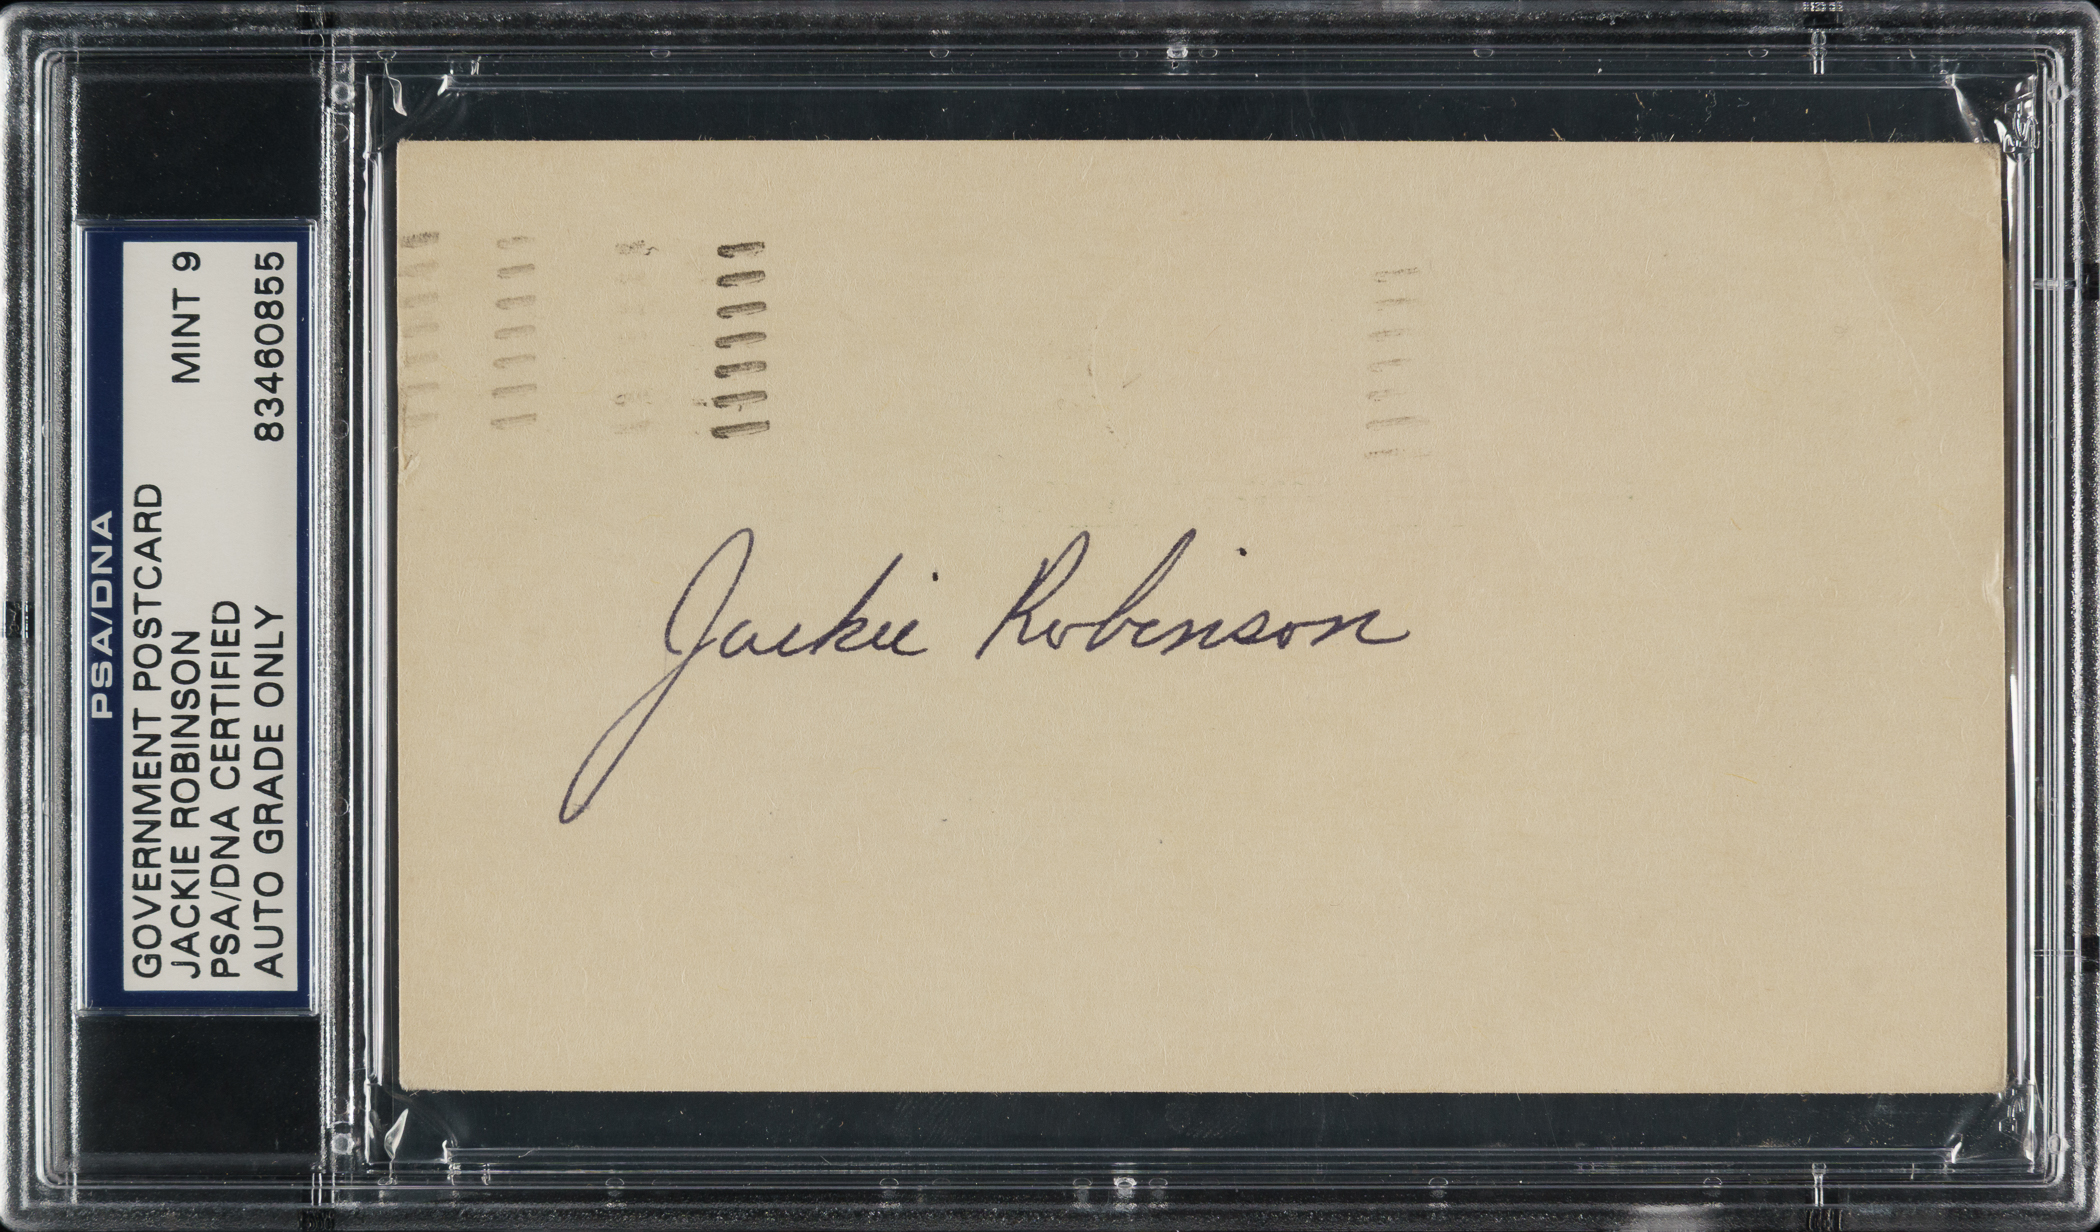 PSA/DNA
GOVERNMENT POSTCARD
JACKIE ROBINSON MINT 9
PSA/DNA CERTIFIED
AUTO GRADE ONLY 83460855
Jackie Robinson